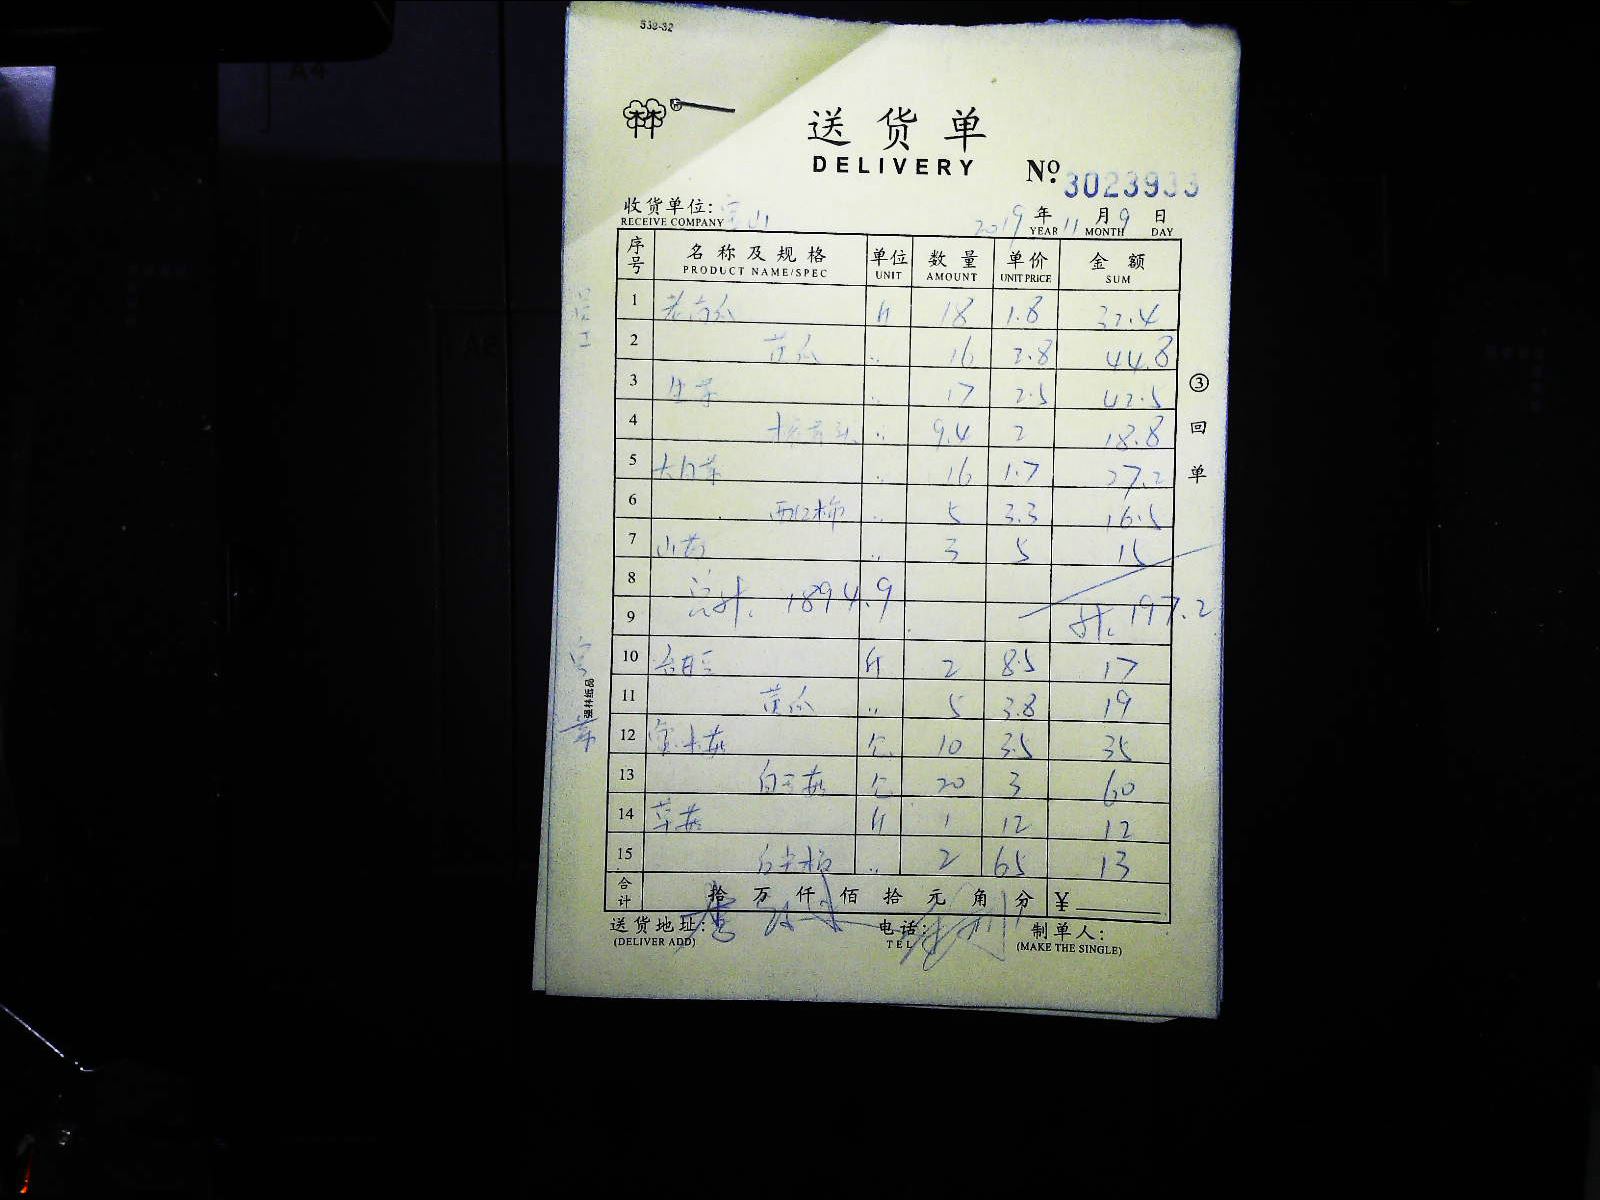 538-32
送货单
DELIVERY
№ 3023933
收货单位: 宝山 2019年11月9日
RECEIVE COMPANY YEAR MONTH DAY
序号 名称及规格 单位 数量 单价 金额
PRODUCT NAME/SPEC UNIT AMOUNT UNIT PRICE SUM
员工
1 老南瓜 斤 18 1.8 32.4
2 黄瓜 〃 16 2.8 44.8
3 生菜 〃 17 2.5 42.5
4 〃 9.4 2 18.8
5 大白菜 〃 16 1.7 27.2
6 西红柿 〃 5 3.3 16.5
7 山药 〃 3 5 15
8 总计: 1894.9
9 计: 197.2
10 斤 2 8.5 17
11 黄瓜 〃 5 3.8 19
12 个 10 3.5 35
13 白玉菇 个 20 3 60
14 草菇 斤 1 12 12
15 〃 2 6.5 13
合计 拾万仟佰拾元角分 ¥
送货地址: 电话: 制单人:
(DELIVER ADD) TEL (MAKE THE SINGLE)
③回单
强林纸品
A4